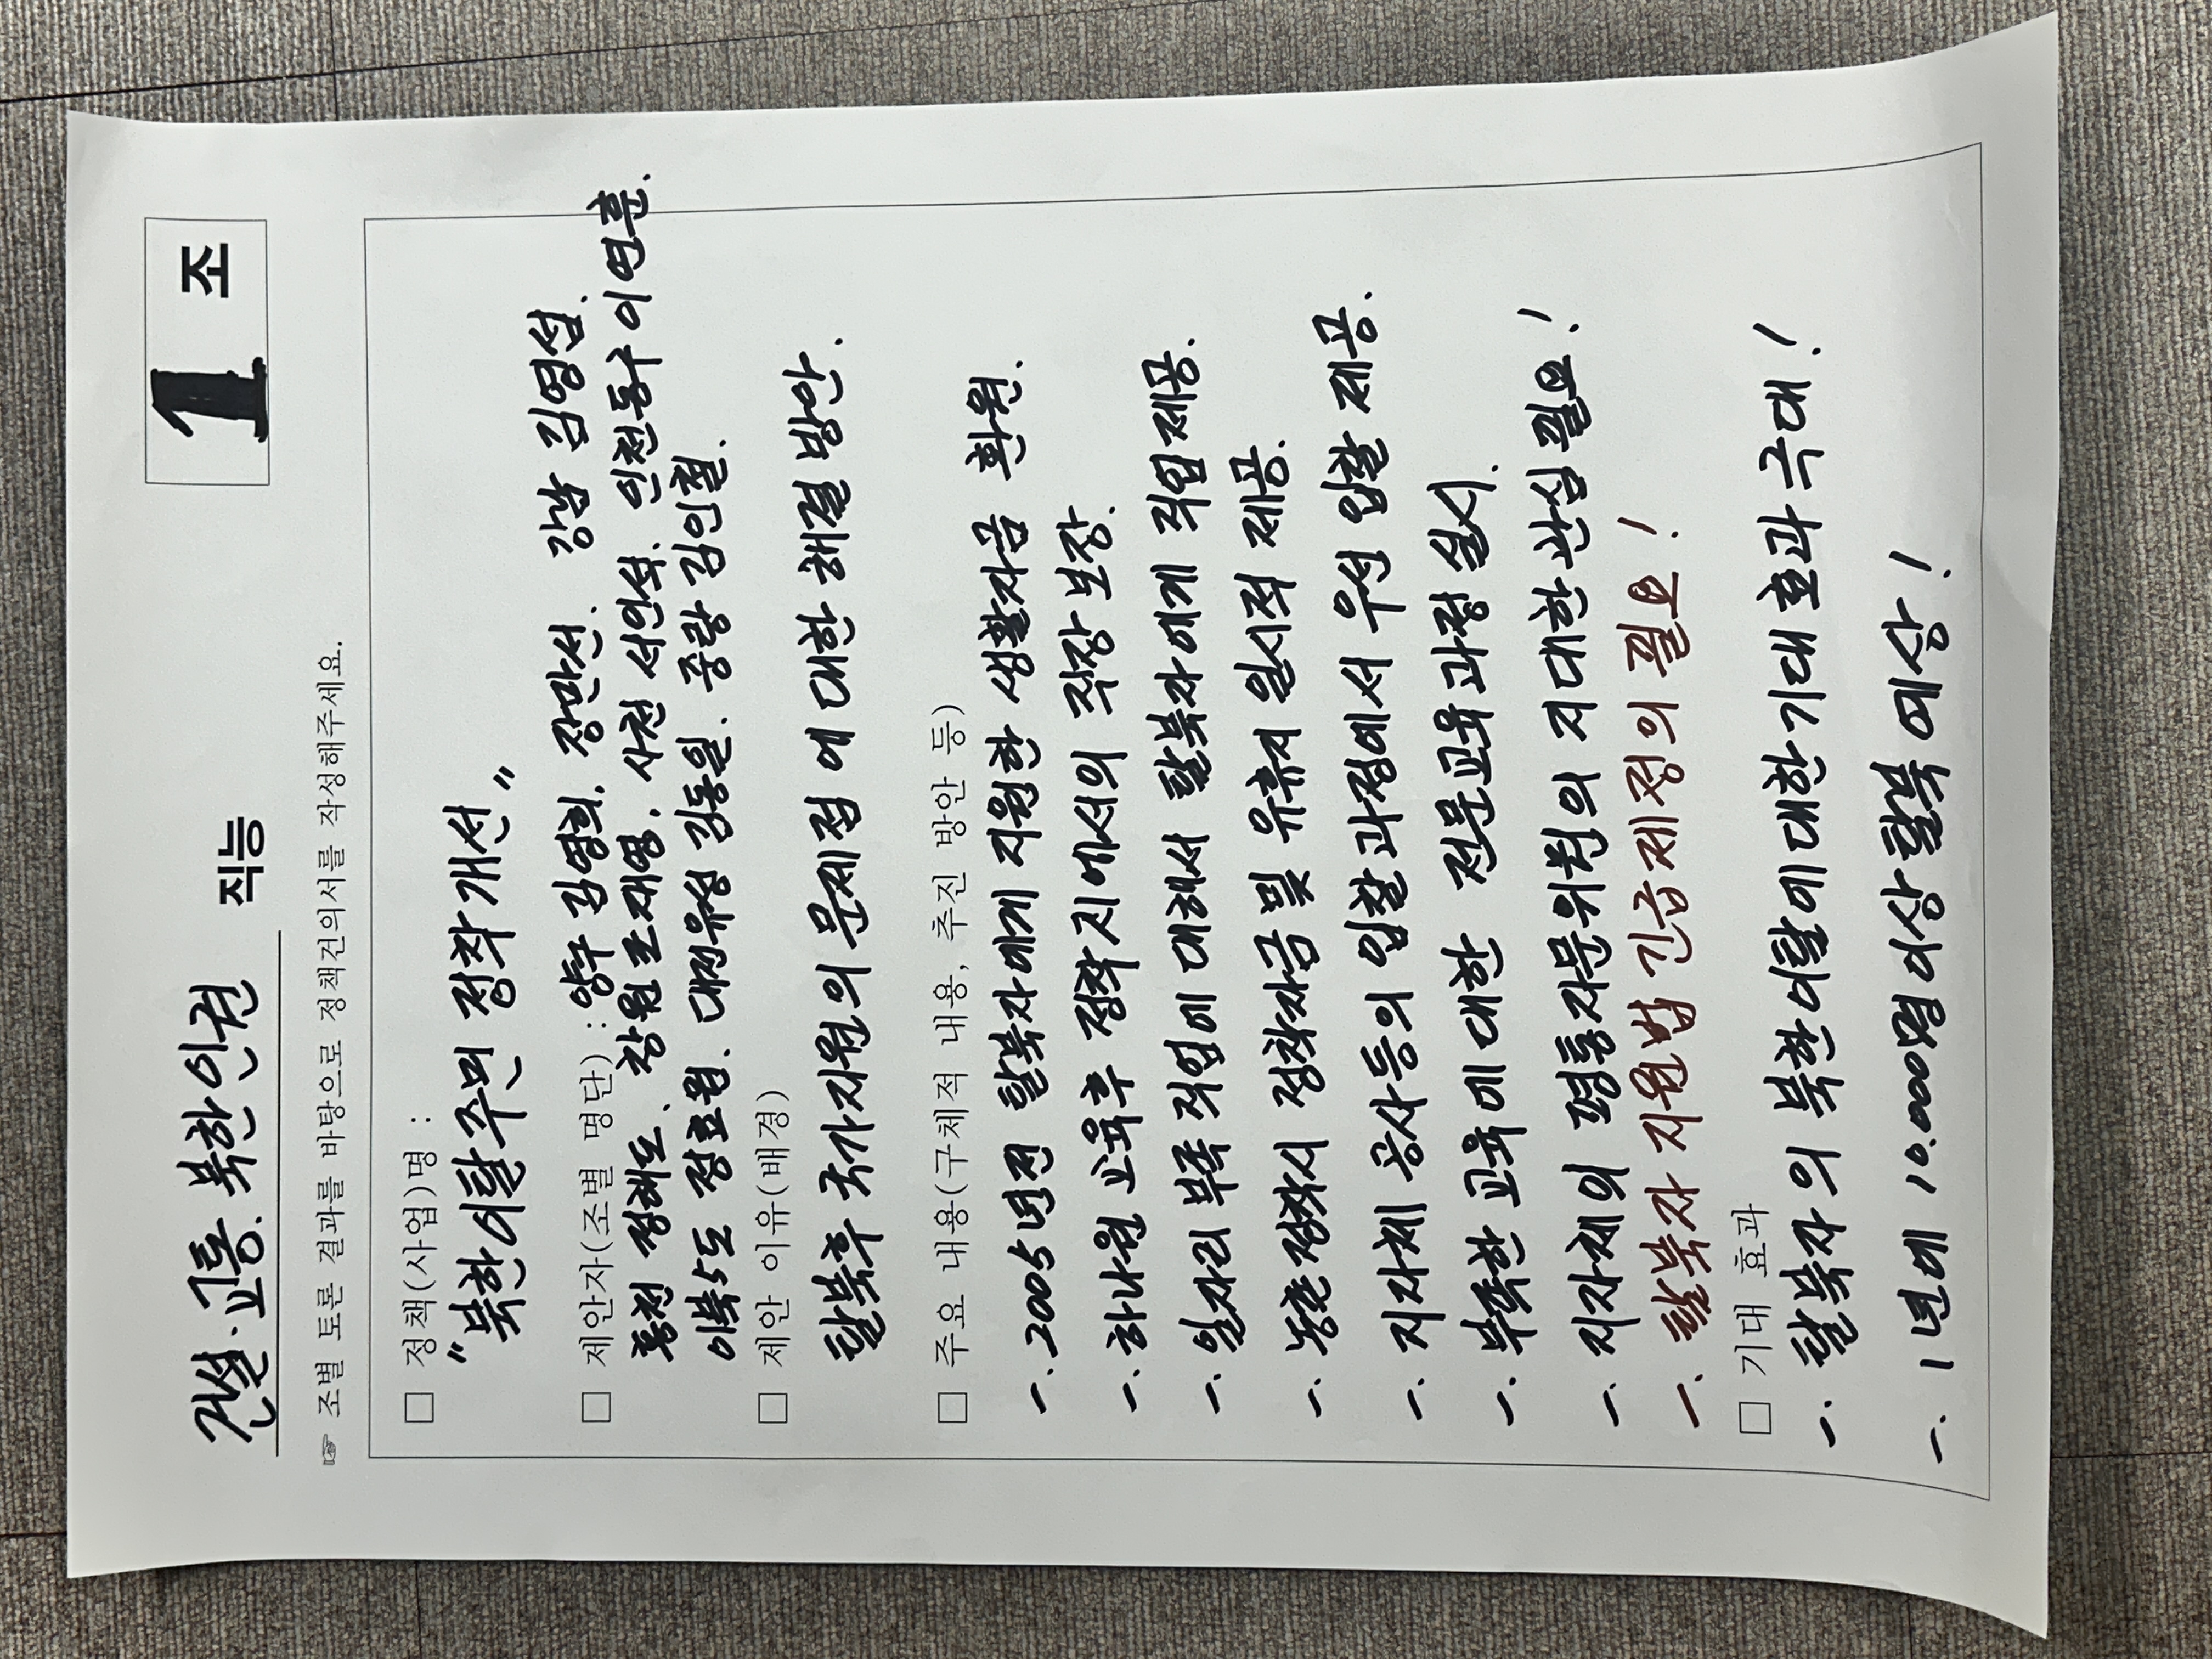 건설.교통. 북한인권 직능
1 조
☞ 조별 토론 결과를 바탕으로 정책건의서를 작성해주세요.
□ 정책(사업)명 :
"북한이탈주민 정착개선"
□ 제안자(조별 명단) : 양구 김영희. 장만선. 강남 김영섭.
홍천 정해도. 창원 조재영. 사천 서의석. 인천동구 이연훈.
이북5도 정효원. 대전유성 김동일. 중랑 김인철.
□ 제안 이유(배경)
탈북후 국가지원의 문제점에 대한 해결 방안.
□ 주요 내용(구체적 내용, 추진 방안 등)
一. 2005년전 탈북자에게 지원한 생활자금 환원.
一. 하나원 교육후 정착지에서의 직장 보장.
一. 일자리 부족 직업에 대해서 탈북자에게 직업제공.
一. 농촌정착시 정착자금 및 유휴지 일시적 제공.
一. 지자체 공사등의 입찰과정에서 우선 입찰 제공.
一. 부족한 교육에 대한 전문교육과정 실시.
一. 지자체의 평통자문위원의 지대한 관심 필요!
一. 탈북자 지원법 긴급제정의 필요!
□ 기대 효과
一. 탈북자의 북한이탈에대한기대 효과 극대!
一. 1년에 10.000명이상 탈북 예상!